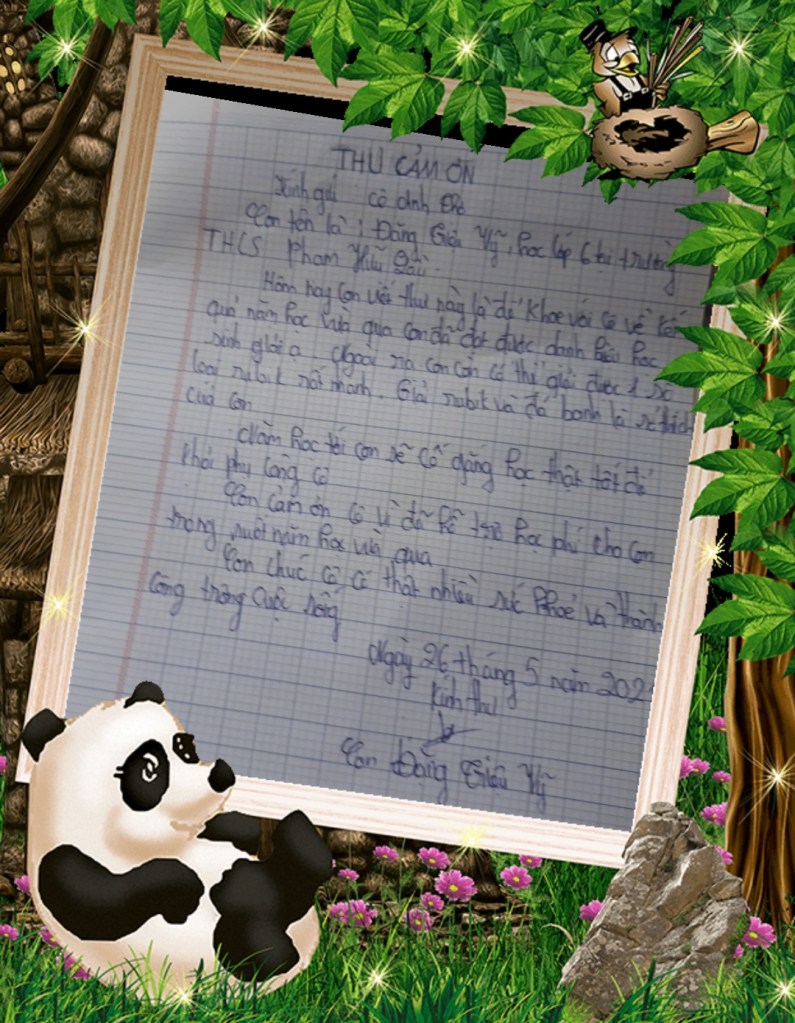 THƯ CẢM ƠN
Kính gửi : cô
Con tên là : Đặng Hỹ, học lớp 6 tại trường
THCS Phạm Hữu Lầu.
Hôm nay con viết thư này là để khoe với cô về kết
quả năm học vừa qua con đã đạt được danh hiệu học
sinh giỏi ạ. Ngoài ra con còn có thể giải được 1 số
loại rubik rất nhanh. Giải rubik và đá banh là sở thích
của con
Năm học tới con sẽ cố gắng học thật tốt để
khỏi phụ lòng cô
Con cảm ơn cô vì đã hỗ trợ học phí cho con
trong suốt năm học vừa qua
Con chúc cô có thật nhiều sức khoẻ và thành
công trong cuộc sống
Ngày 26 tháng 5 năm 202
Kính thư
Con Đặng Hỹ